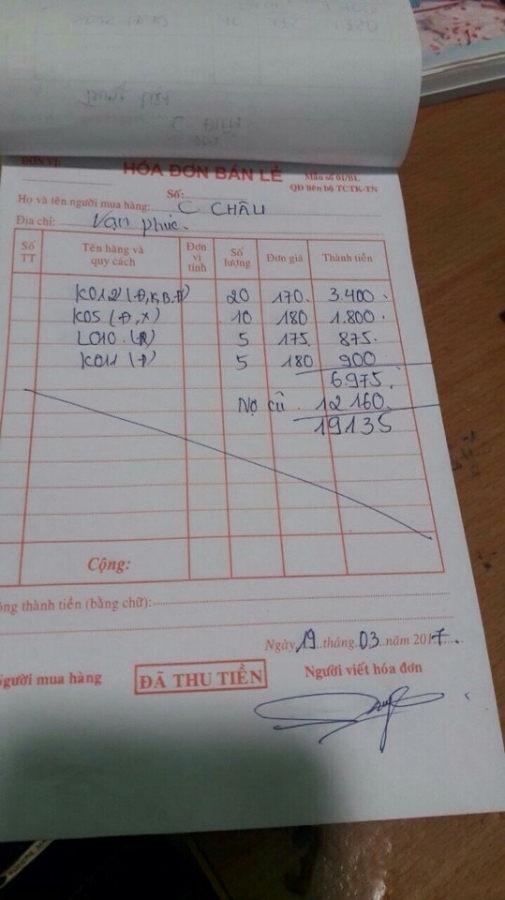 ĐƠN VỊ
HÓA ĐƠN BÁN LẺ
Mẫu số 01/BL
QĐ liên bộ TCTK-TN
Số:
Họ và tên người mua hàng: C CHÂU
Địa chỉ: Vạn phúc.
Số TT Tên hàng và quy cách Đơn vị tính Số lượng Đơn giá Thành tiền
K012 (Đ,K,B,Đ) 20 170. 3.400.
K05 (Đ,X) 10 180 1.800.
L010 (R) 5 175 875.
K011 (Đ) 5 180 900
6.975.
Nợ cũ 12160.
19135
Cộng:
ộng thành tiền (bằng chữ):
Ngày 19 tháng 03 năm 2017.
gười mua hàng ĐÃ THU TIỀN Người viết hóa đơn